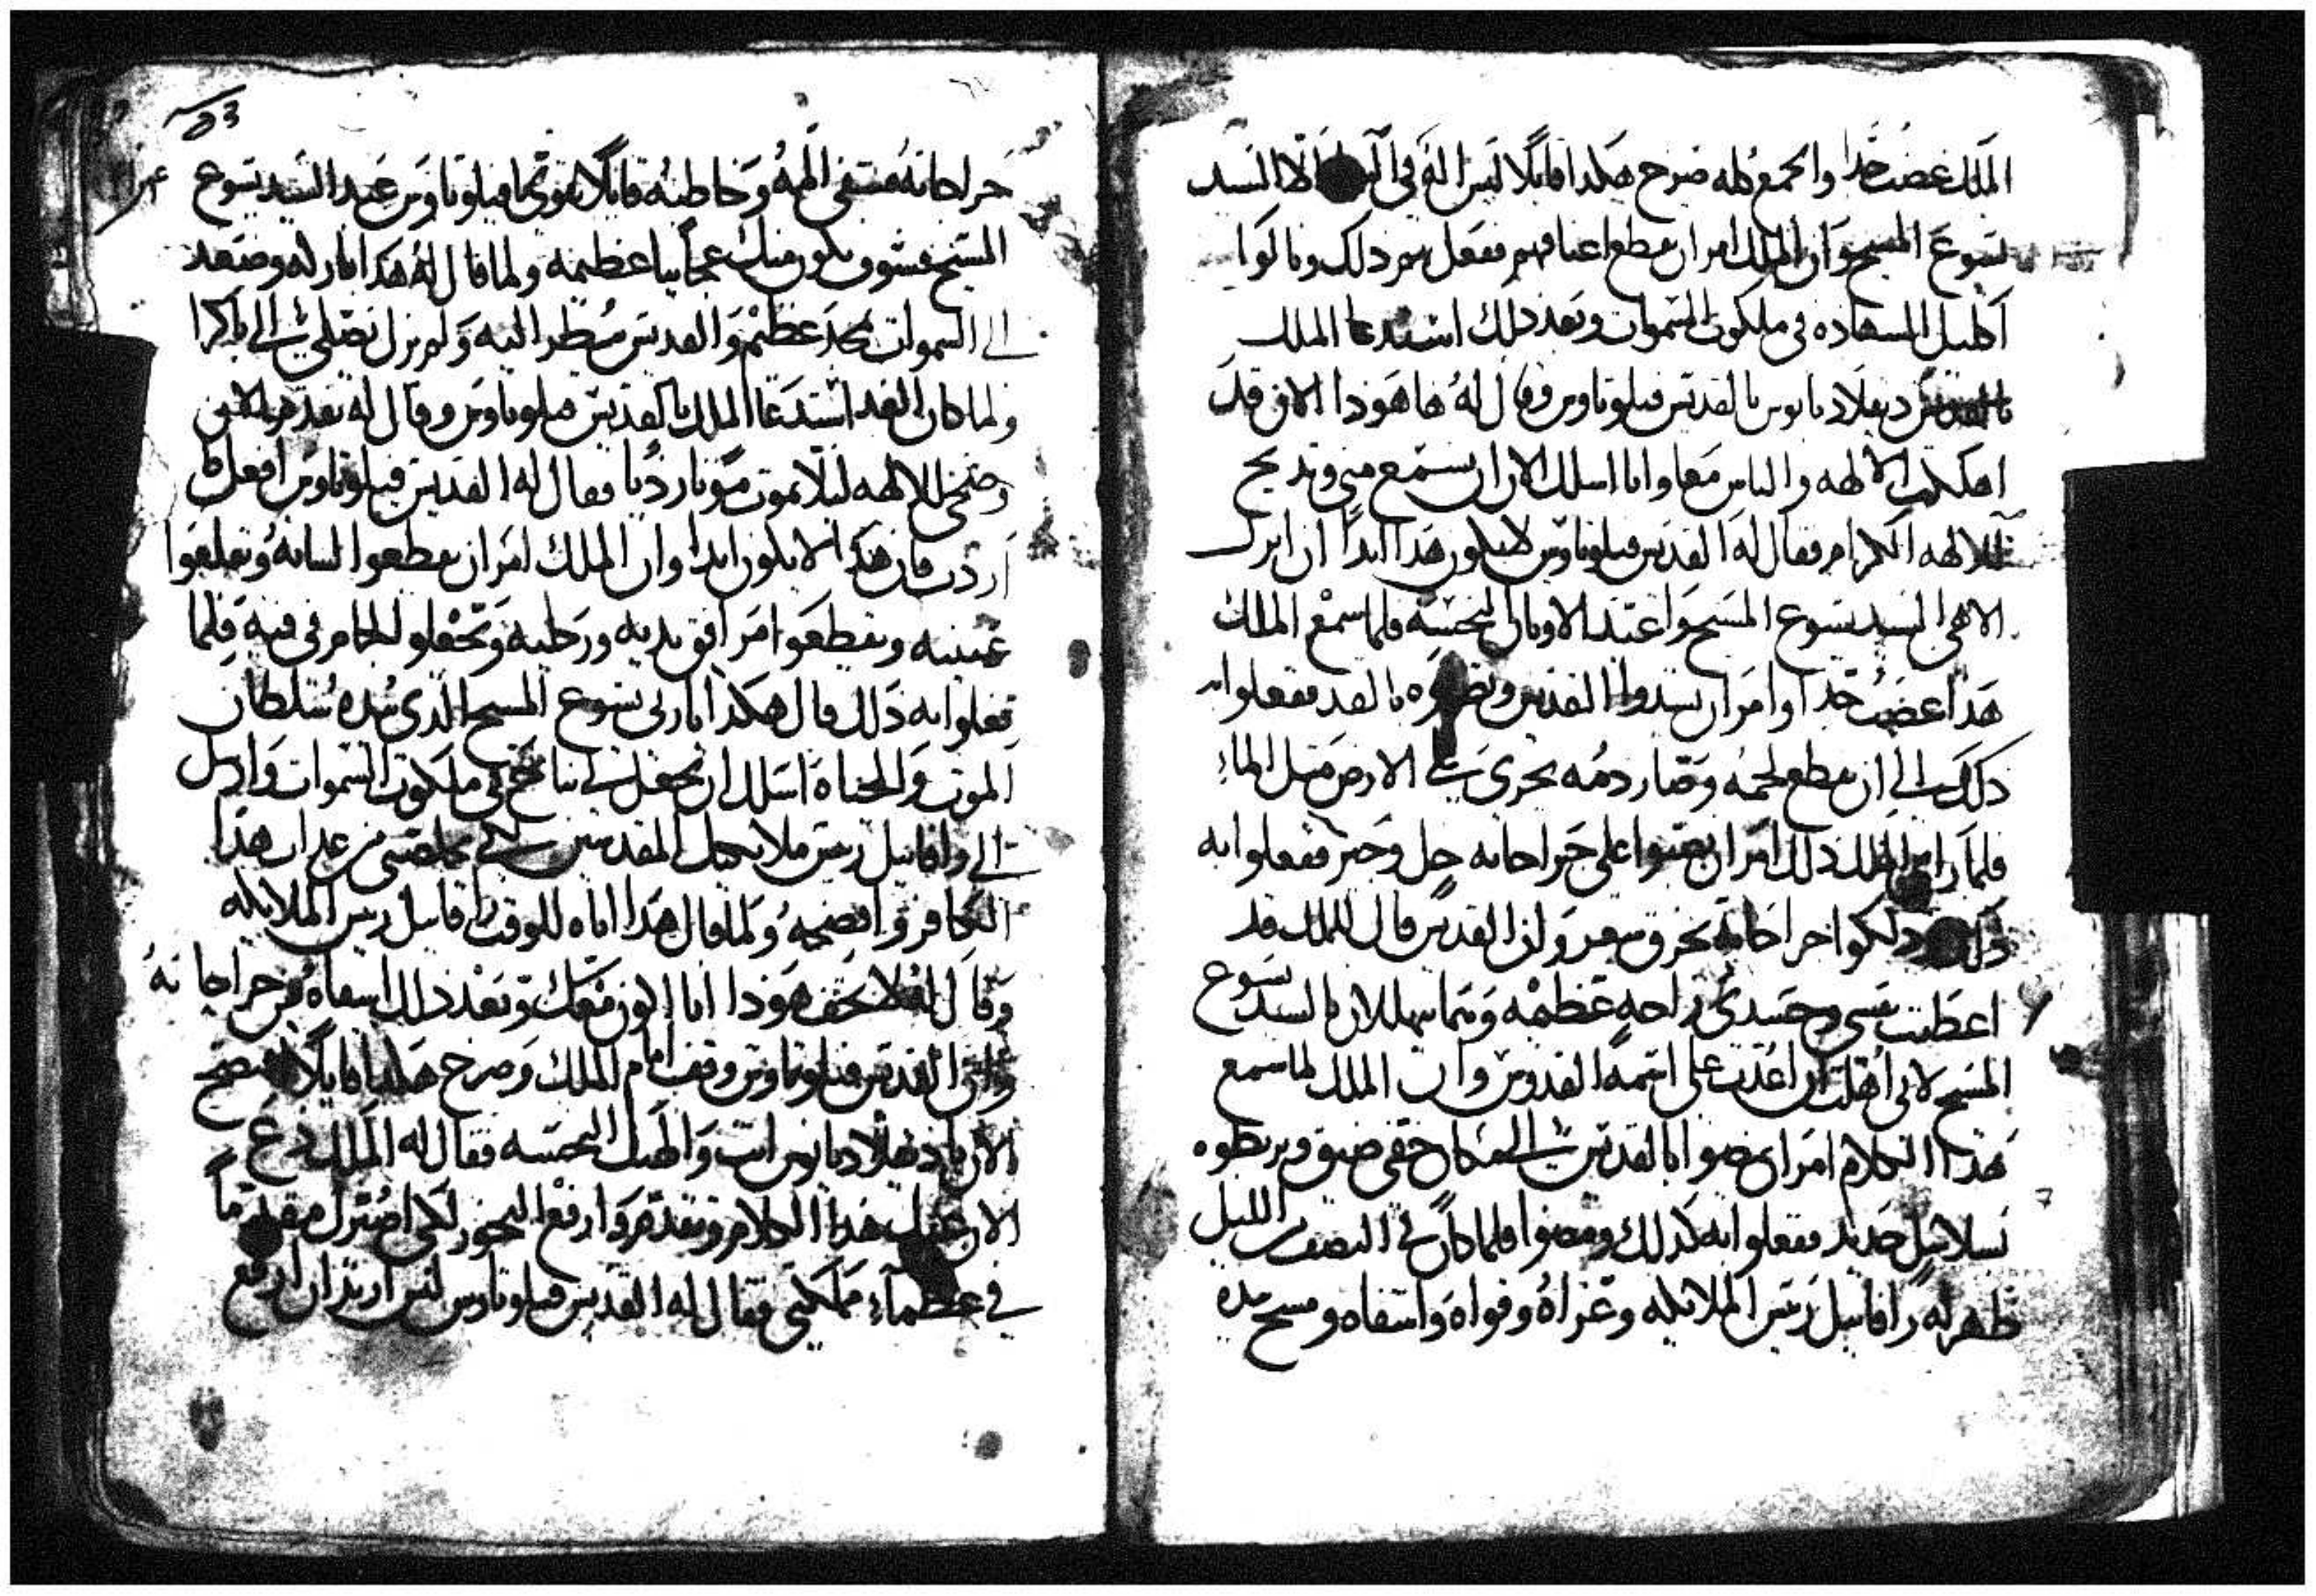 الملك غضب جدا والجمع كله صرخ هكذا قايلا ليس اله في الا السيد
يسوع المسيح وان الملك امر ان يقطع اعناقهم ففعل بهم ذلك ونالوا
اكليل الشهاده في ملكوت السموات وبعد ذلك استدعا الملك
دقلاديانوس بالقديس فيلوتاوس وقال له ها هوذا الان قد
اهلكت الالهه والناس معا وانا اسلك الان ان تستمع مني وتذبح
للالهه الكرام فقال له القديس فيلوتاوس لا يكون هذا ابدا ان اترك
الاهي السيد يسوع المسيح واعبد الاوثان النجسه فلما سمع الملك
هذا غضب جدا وامر ان يشدوا القديس بالقد ففعلوا به
ذلك الى ان تقطع لحمه وصار دمه يجري على الارض مثل الماء
فلما راى الملك ذلك امر ان يصبوا على جراحاته خل وجير ففعلوا به
ذلك ودلكوا جراحاته بخروق شعر وان القديس قال للملك قد
اعطيت نفسي وجسدي راحه عظيمه وتماما يهللان بالسيد يسوع
المسيح لاني اهلت ان اعذب على اسمه القدوس وان الملك لما سمع
هذا الكلام امر ان يمضوا بالقديس الى مكان خفي ضيق ويربطوه
بسلاسل حديد ففعلوا به كذلك ومضوا فلما كان في النصف الليل
ظهر له رافاييل رييس الملايكه وعزاه وقواه واشفاه ومسح بيده
53
جراحاته فشفي الله وخاطبه قايلا تقوى يا فيلوتاوس عبد السيد يسوع
المسيح فسوف يكون منك عجايبا عظيمه ولما قال له هكذا باركه وصعد
الى السموات بمجد عظيم والقديس ينظر اليه ولم يزل يصلي الى باكرا
ولما كان الغد استدعا الملك بالقديس فيلوتاوس وقال له تقدم الان
وضحي للالهه ليلا تموت موتا رديا فقال له القديس فيلوتاوس افعل كلما
اردت فان هذا لا يكون ابدا وان الملك امر ان يقطعوا لسانه ويقلعوا
عينيه ويقطعوا مرافق يديه ورجليه ويجعلوا لجام في فيه فلما
فعلوا به ذلك قال هكذا يا ربي يسوع المسيح الذي بيده سلطان
الموت والحياه اسلك ان تجعل لي نياح في ملكوت السموات وارسل
الي رافاييل رييس ملايكتك المقدسين لكي يخلصني من عذاب هذا
الكافر وافضحه ولما قال هذا اتاه للوقت رافاييل رييس الملايكه
وقال له لا تخف هوذا انا اكون معك وبعد ذلك اشفاه من جراحاته
وان القديس فيلوتاوس وقف امام الملك وصرخ هكذا قايلا افتضح
الان يا دقلاديانوس انت والهتك النجسه فقال له الملك دع
الان عنك هذا الكلام وتقدم وارفع البخور لكي اصيرك مقدما
في عظماء مملكتي فقال له القديس فيلوتاوس ليس اريد ان ارفع